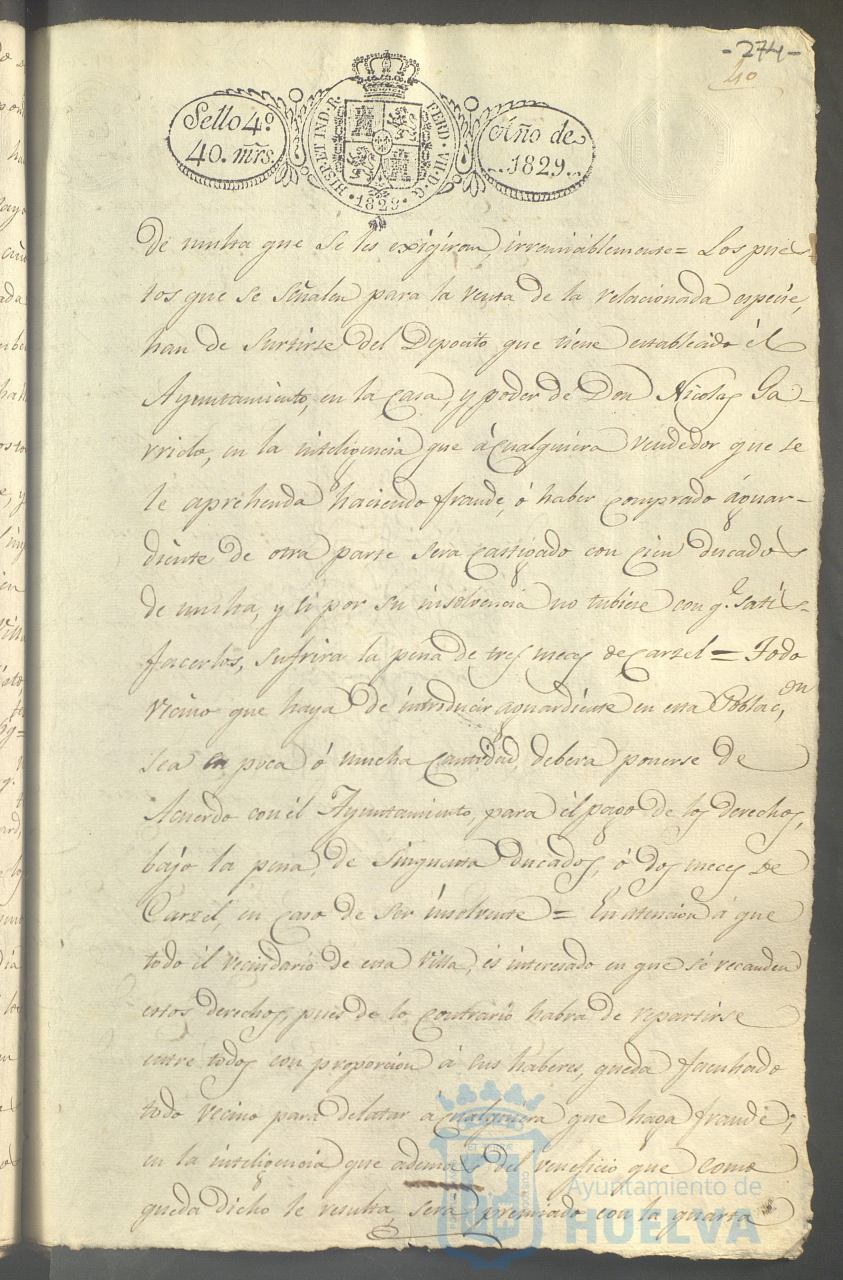 -274-
40
Sello 4º.
40. mrs.
HISP. ET IND. R.
FERD. VII. D. G.
1829
Año de
1829.
de multa que se les exigiran, irremiciblemente = Los pues-
tos que se señalen para la venta de la relacionada especie,
han de surtirse del Deposito que tiene establecido él
Ayuntamiento, en la Casa, y poder de Don Nicolas Ga-
rrido, en la inteligencia que á cualquiera vendedor que se
le aprehenda haciendo fraude, ó haber comprado águar-
diente de otra parte sera castigado con cien ducados
de multa, y si por su insolvencia no tubiere con qe. satis-
facerlos, sufrira la pena de tres meces de Carzel = Todo
vecino que haya de introducir aguardiente en esta Poblacon,
sea en poca ó mucha Cantidad, debera ponerse de
Acuerdo con él Ayuntamiento, para él pago de los derechos,
bajo la pena, de Sinquenta ducados, ó dos meces de
Carzel, en caso de ser insolvente = En atencion á que
todo él vecindario de esta Villa, és interesado en que sé recauden
estos derechos, pues de lo contrario habra de repartirse
entre todos con proporcion á sus haberes, queda facultado
todo vecino para delatar á cualquiera que haga fraude;
en la inteligencia que ademas del veneficio que como
queda dicho le resulta, será premiado con la quarta
Ayuntamiento de
HUELVA